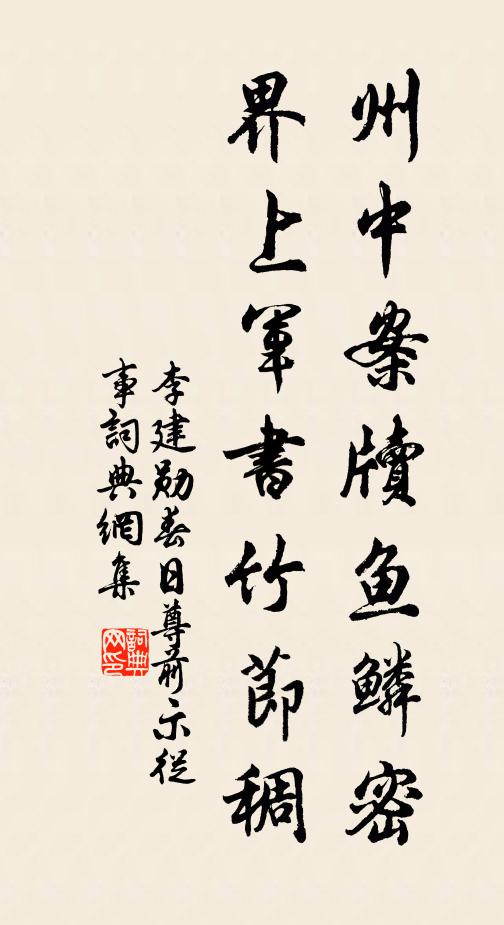 州中案牘魚鱗密
界上軍書竹節稠
李建勋春日尊前示從
事詞典網集
詞典
网印